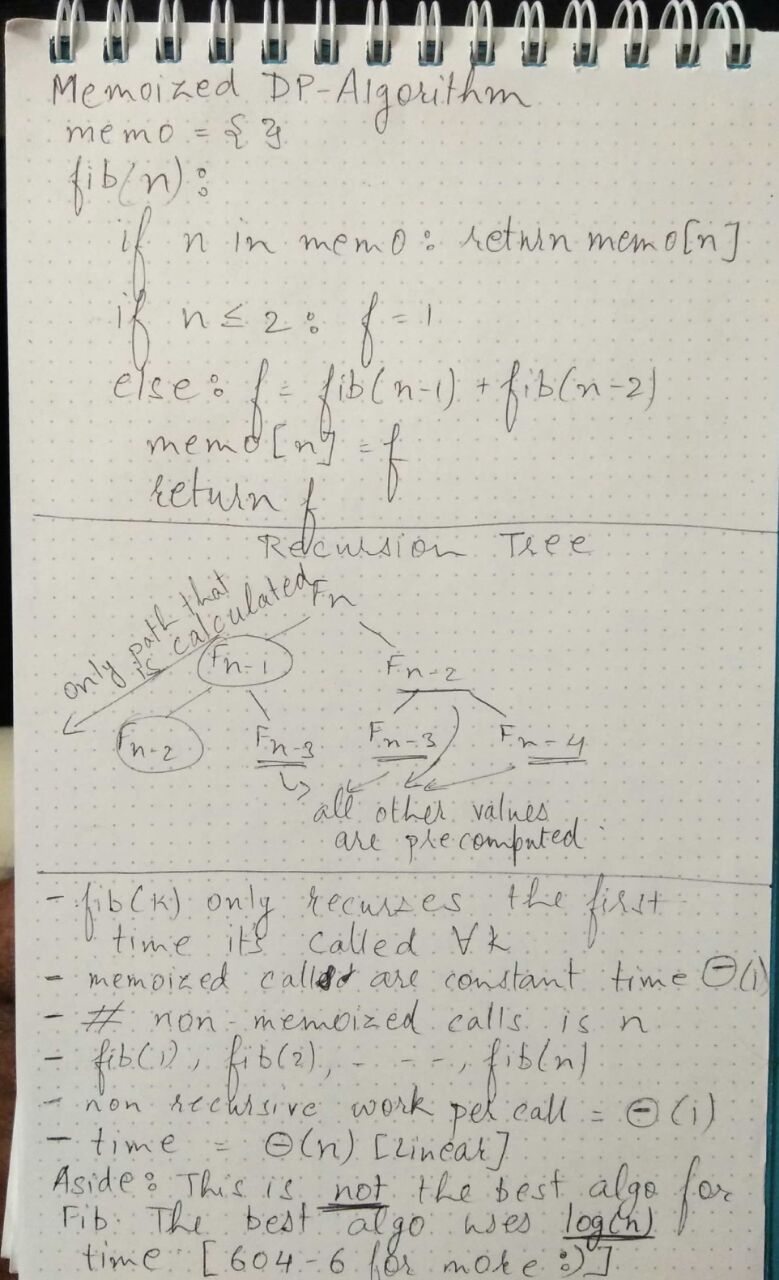 Memoized DP-Algorithm
memo = { }
fib(n):
if n in memo: return memo[n]
if n ≤ 2: f = 1
else: f = fib(n-1) + fib(n-2)
memo[n] = f
return f
Recursion Tree
only path that
is calculated
Fn
Fn-1 Fn-2
Fn-2 Fn-3 Fn-3 Fn-4
all other values
are precomputed
- fib(k) only recurses the first
time it's called ∀k
- memoized calls are constant time Θ(1)
- # non-memoized calls is n
- fib(1), fib(2), - - -, fib(n)
- non recursive work per call = Θ(1)
- time = Θ(n) [Linear]
Aside: This is not the best algo for
Fib. The best algo uses log(n)
time [604-6 for more :)]